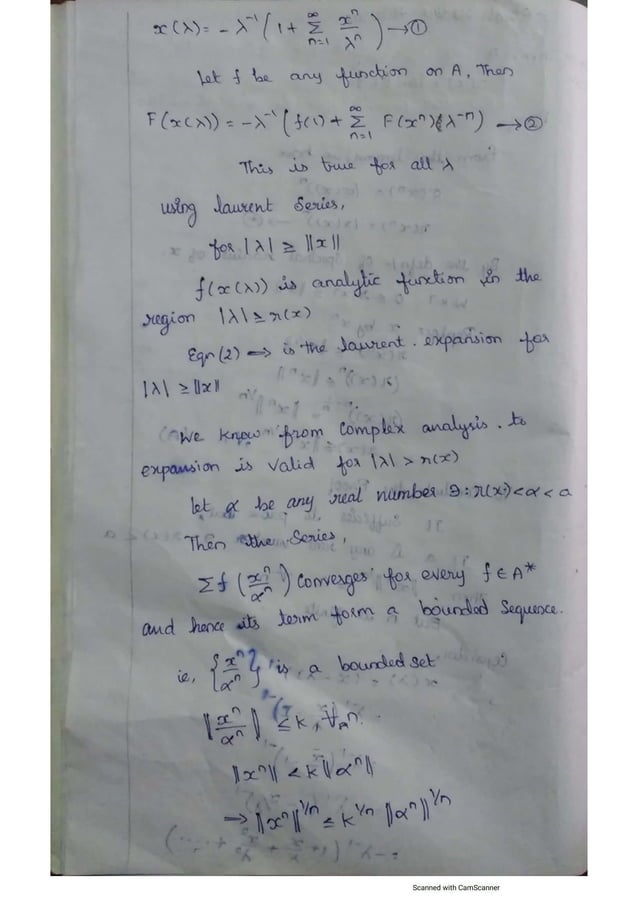 x(λ) = - λ⁻¹ ( 1 + ∞ Σ n=1 xⁿ/λⁿ ) → ①
Let f be any function on A, Then
F(x(λ)) = -λ⁻¹ ( f(1) + ∞ Σ n=1 F(xⁿ) (λ⁻ⁿ) → ②
This is true for all λ
using laurent Series,
for |λ| ≥ ||x||
f(x(λ)) is analytic function in the
region |λ| ≥ r(x)
Eqn (2) ⇒ is the laurent. expansion for
|λ| ≥ ||x||
We know from complex analysis. to
expansion is valid for |λ| > r(x)
let α be any real number ∋: r(x) < α < a
Then the Series,
Σ f (xⁿ/αⁿ) converges for every f ∈ A*
and hence its term form a bounded Sequence.
ie, {xⁿ/αⁿ} is a bounded set
||xⁿ/αⁿ|| ≤ k, ∀ n.
||xⁿ|| < k ||αⁿ||
→ ||xⁿ||^1/n ≤ k^1/n ||αⁿ||^1/n
Scanned with CamScanner